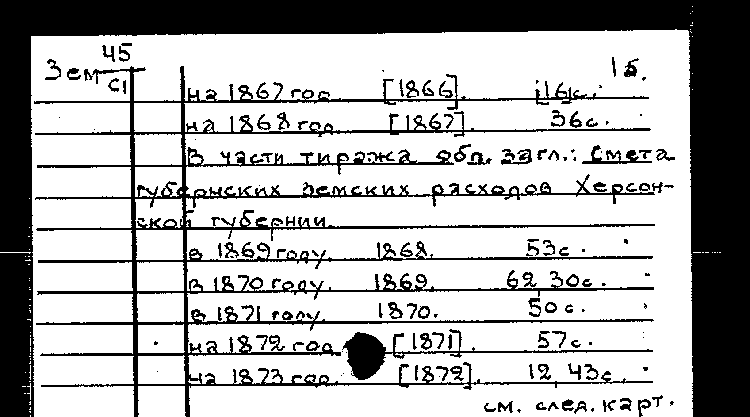 Зем 45/С1 1б.
на 1867 год. [1866]. 16с.
на 1868 год [1867]. 36с.
В части тиража обл. загл.: Смета
губернских земских расходов Херсон-
ской губернии.
в 1869 году. 1868. 53с.
в 1870 году. 1869. 62, 30с.
в 1871 году. 1870. 50с.
на 1872 год [1871]. 57с.
на 1873 год. [1872]. 12, 43с.
см. след. карт.